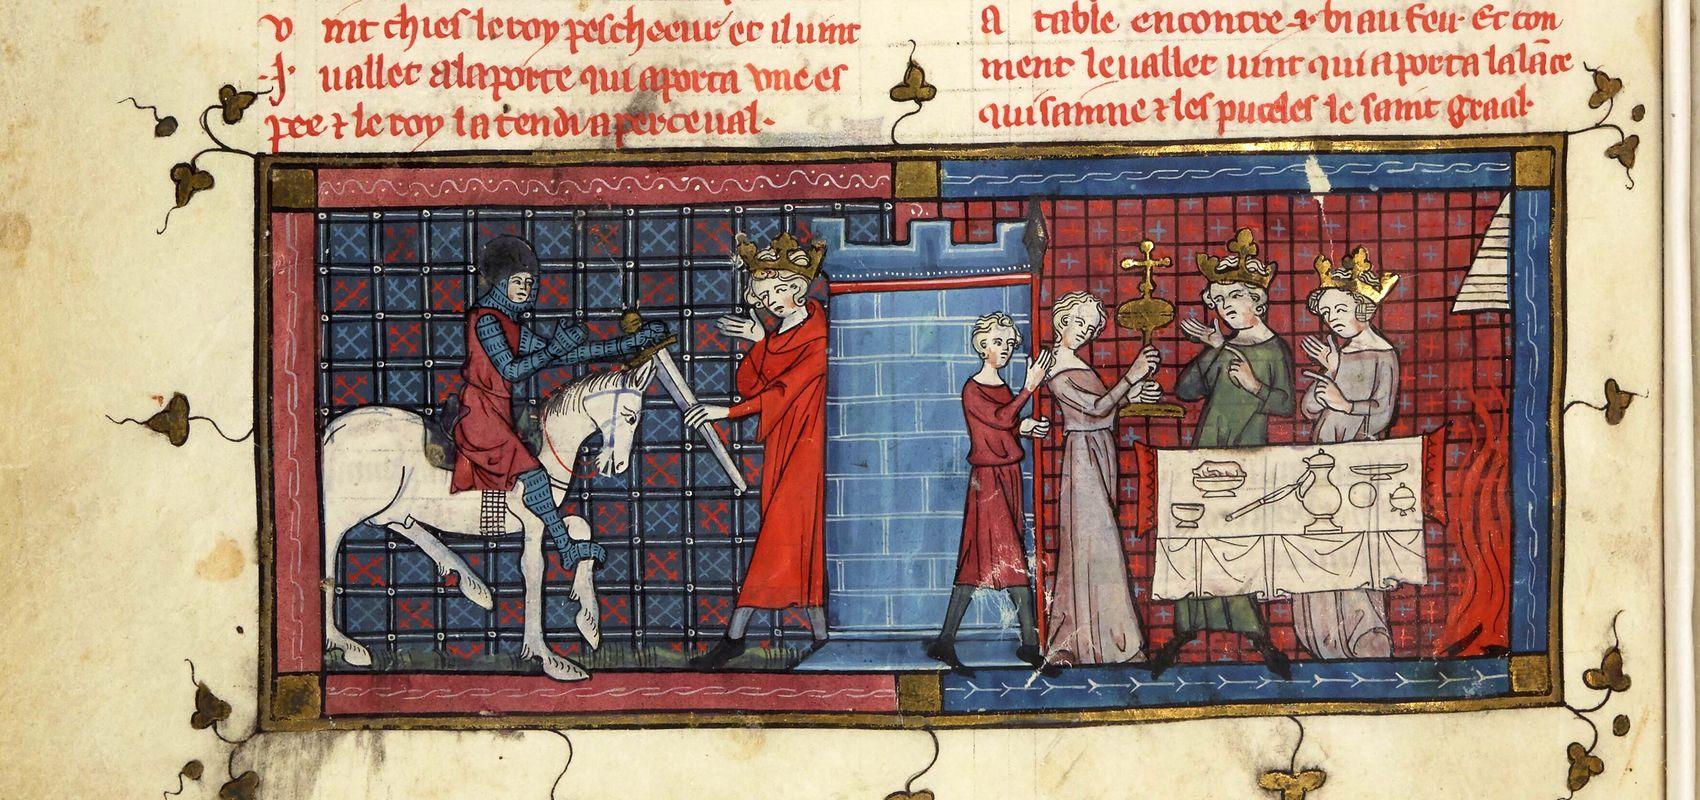 v int chies le roy pescheeur et il uint
·J· uallet a la porte qui aporta vne es
pee ⁊ le roy la tendi a perceual·
A table encontre ·j· biau feu· Et con
ment le uallet uint qui aporta la lāce
qui sainne ⁊ les puceles le saint graal·